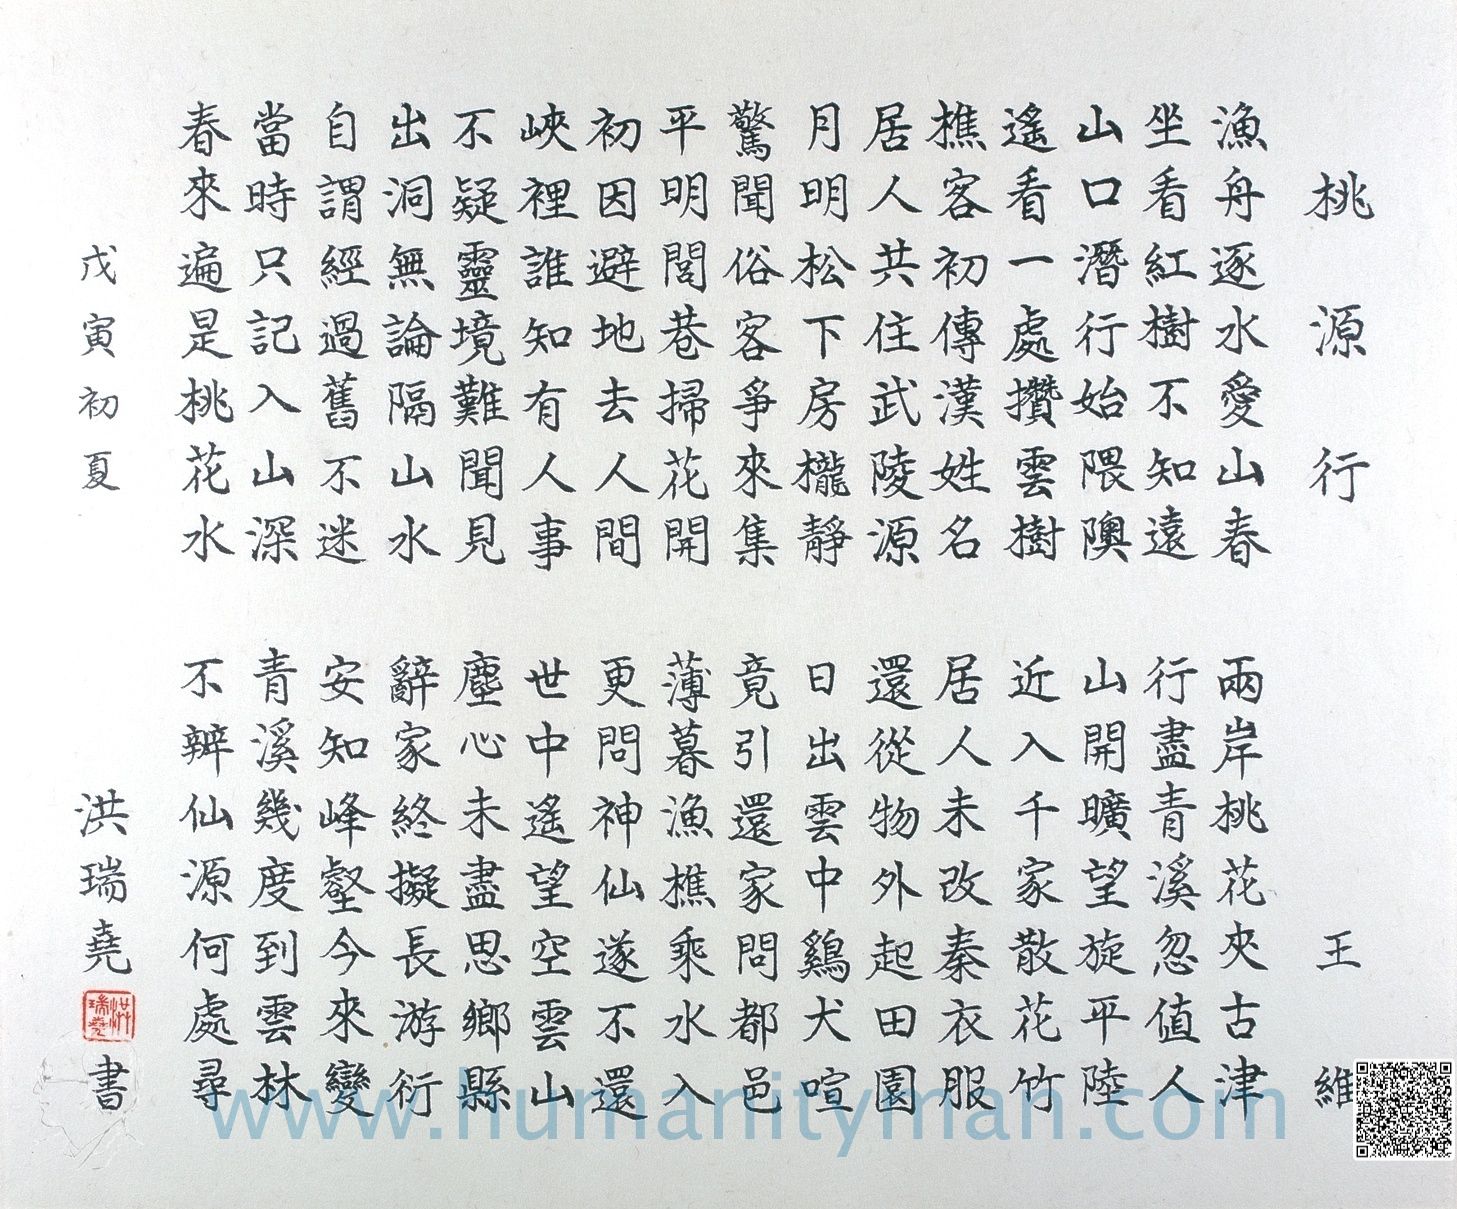 桃源行 王維
漁舟逐水愛山春 兩岸桃花夾古津
坐看紅樹不知遠 行盡青溪忽值人
山口潛行始隈隩 山開曠望旋平陸
遙看一處攢雲樹 近入千家散花竹
樵客初傳漢姓名 居人未改秦衣服
居人共住武陵源 還從物外起田園
月明松下房櫳靜 日出雲中鷄犬喧
驚聞俗客爭來集 竟引還家問都邑
平明閭巷掃花開 薄暮漁樵乘水入
初因避地去人間 更問神仙遂不還
峽裡誰知有人事 世中遙望空雲山
不疑靈境難聞見 塵心未盡思鄉縣
出洞無論隔山水 辭家終擬長游衍
自謂經過舊不迷 安知峰壑今來變
當時只記入山深 青溪幾度到雲林
春來遍是桃花水 不辨仙源何處尋
戊寅初夏 洪瑞堯 書
洪瑞堯
www.humanityman.com